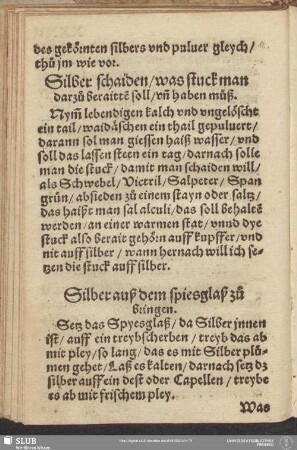 des gekörnten silbers vnd puluer gleych/
thů jm wie vor.
Silber schaiden/was stuck man
darzů beraittē soll/vñ haben můß.
Nym̃ lebendigen kalch vnd vngelöscht
ein tail/waidäschen ein thail gepuluert/
darann sol man giessen haiß wasser/vnd
soll das lassen steen ein tag/darnach solle
man die stuck/damit man schaiden will/
als Schwebel/Victril/Salpeter/Span
grün/absieden zů einem stayn oder saltz/
das haißt man sal alculi/das soll behaltē
werden/an einer warmen stat/vnnd dye
stuck also berait gehörn auff kupffer/vnd
nit auff silber/wann hernach will ich se-
tzen die stuck auff silber.
Silber auß dem spiesglaß zů
bringen.
Setz das Spyesglaß/da Silber jnnen
ist/auff ein treybscherben/treyb das ab
mit pley/so lang/das es mit Silber plů-
men gehet/Laß es kalten/darnach setz dz
silber auff ein dest oder Capellen/treybe
es ab mit frischem pley.
Was
SLUB
Wir führen Wissen.